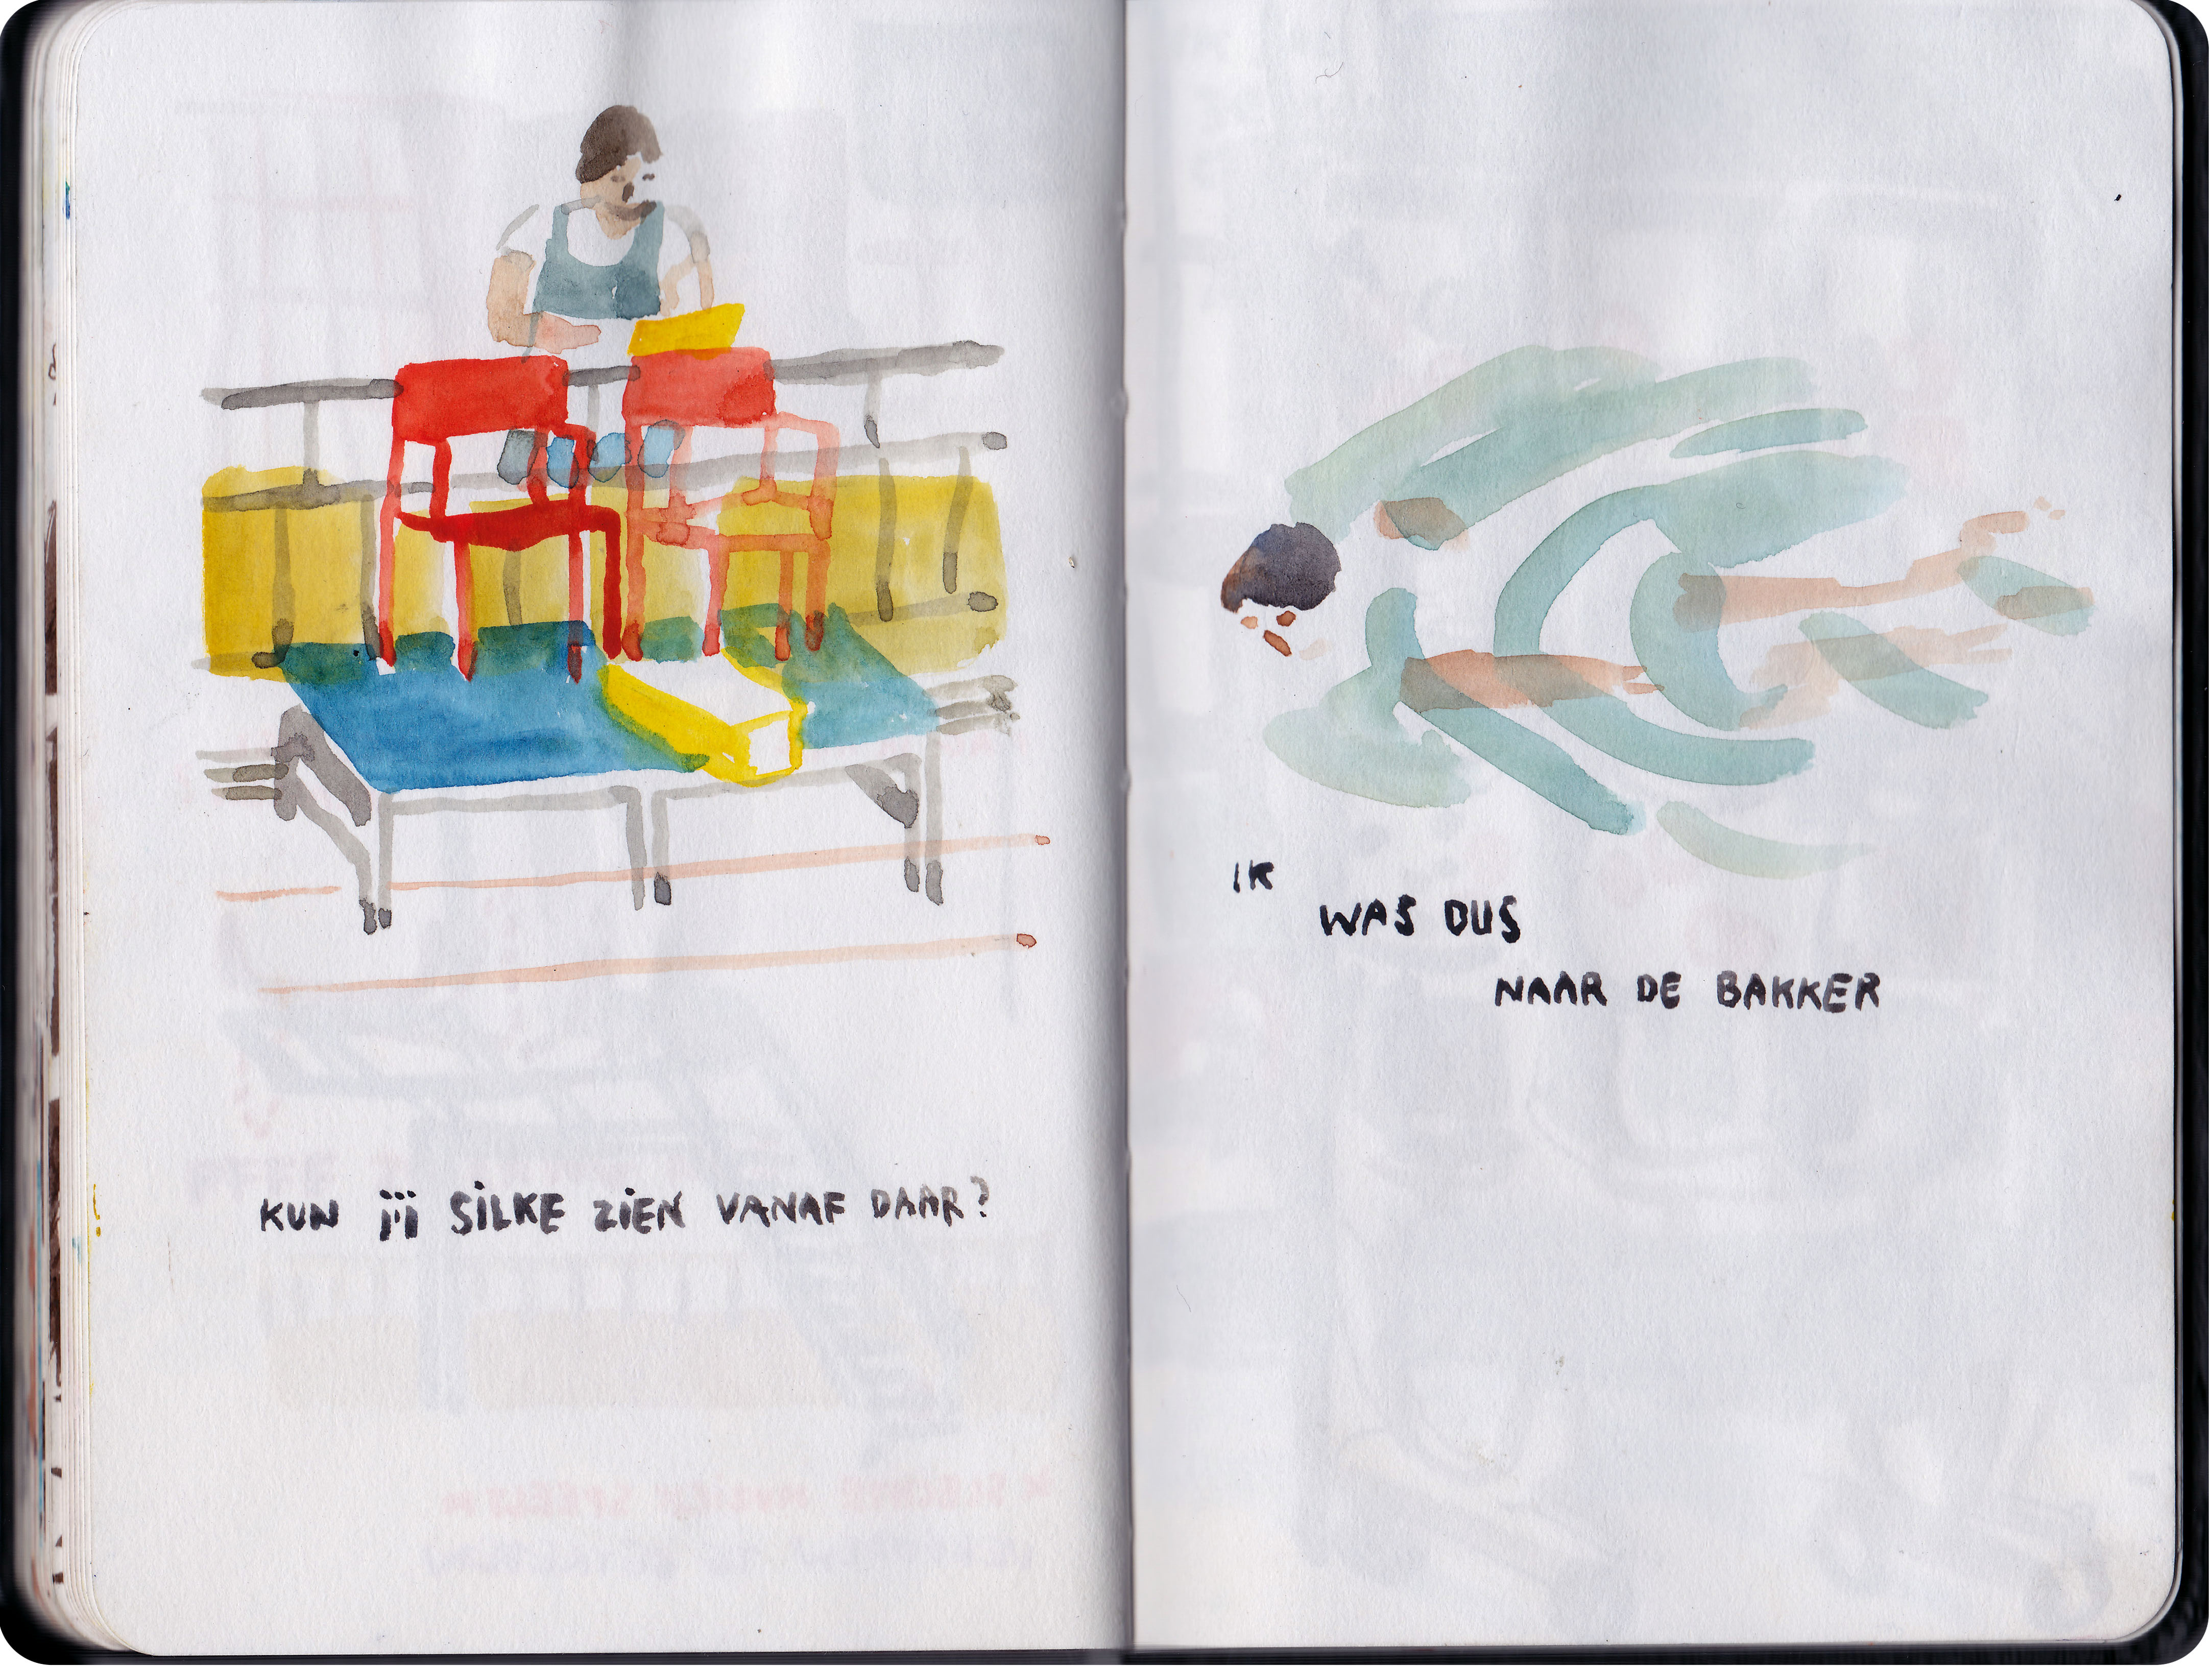 KUN JIJ SILKE ZIEN VANAF DAAR?
IK
WAS DUS
NAAR DE BAKKER